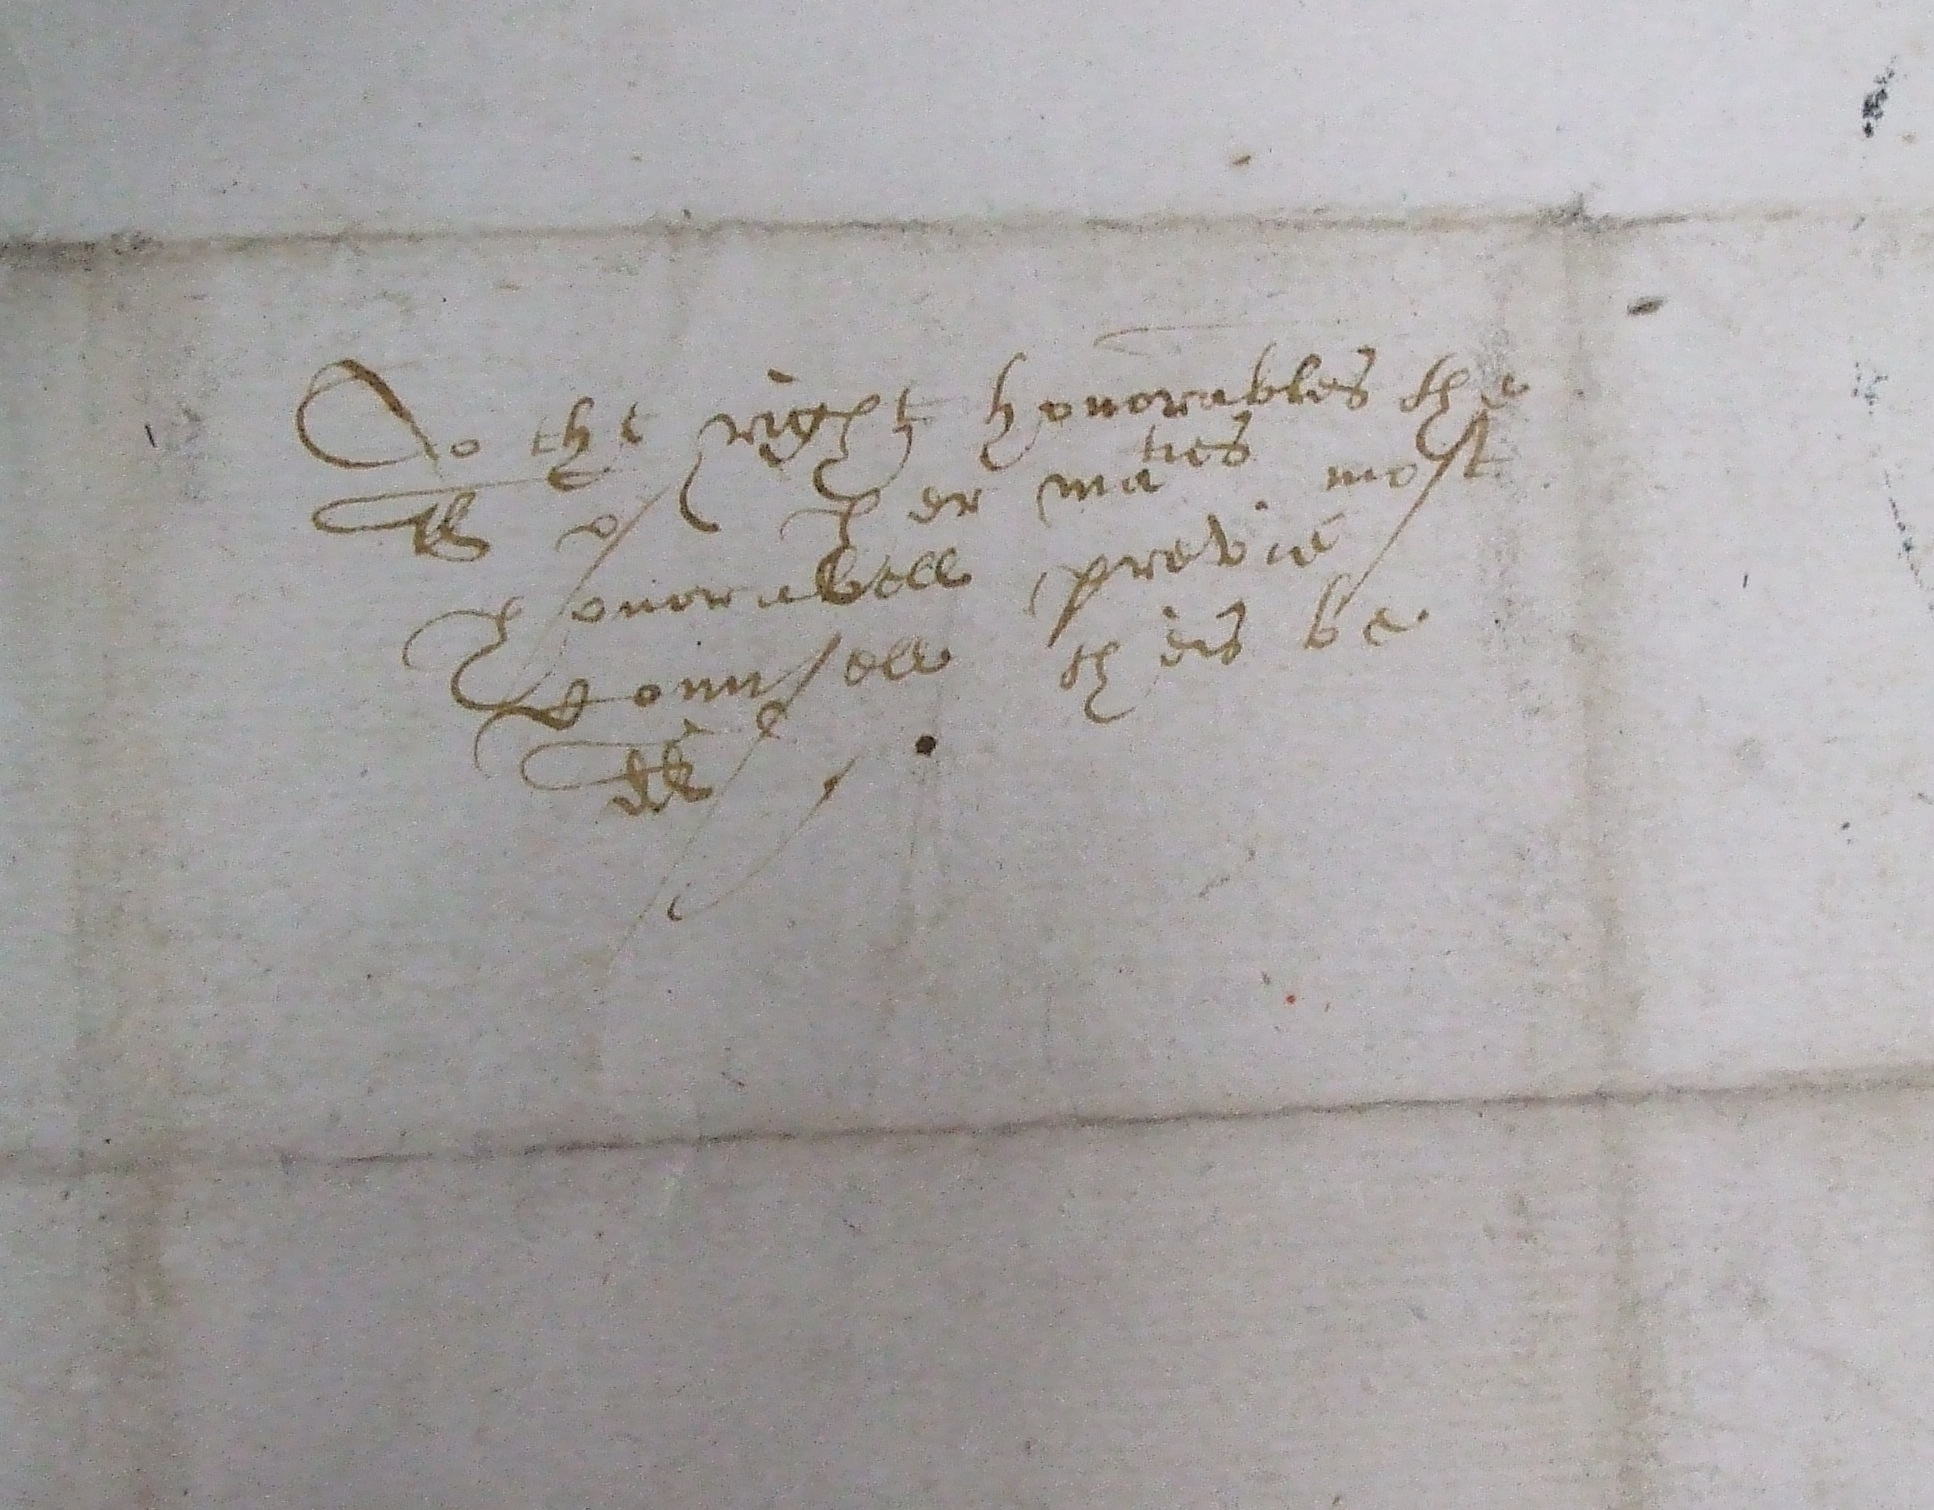 To the right honorables the
LL of her maties most
honorabell previe
Counsell theis be
dd